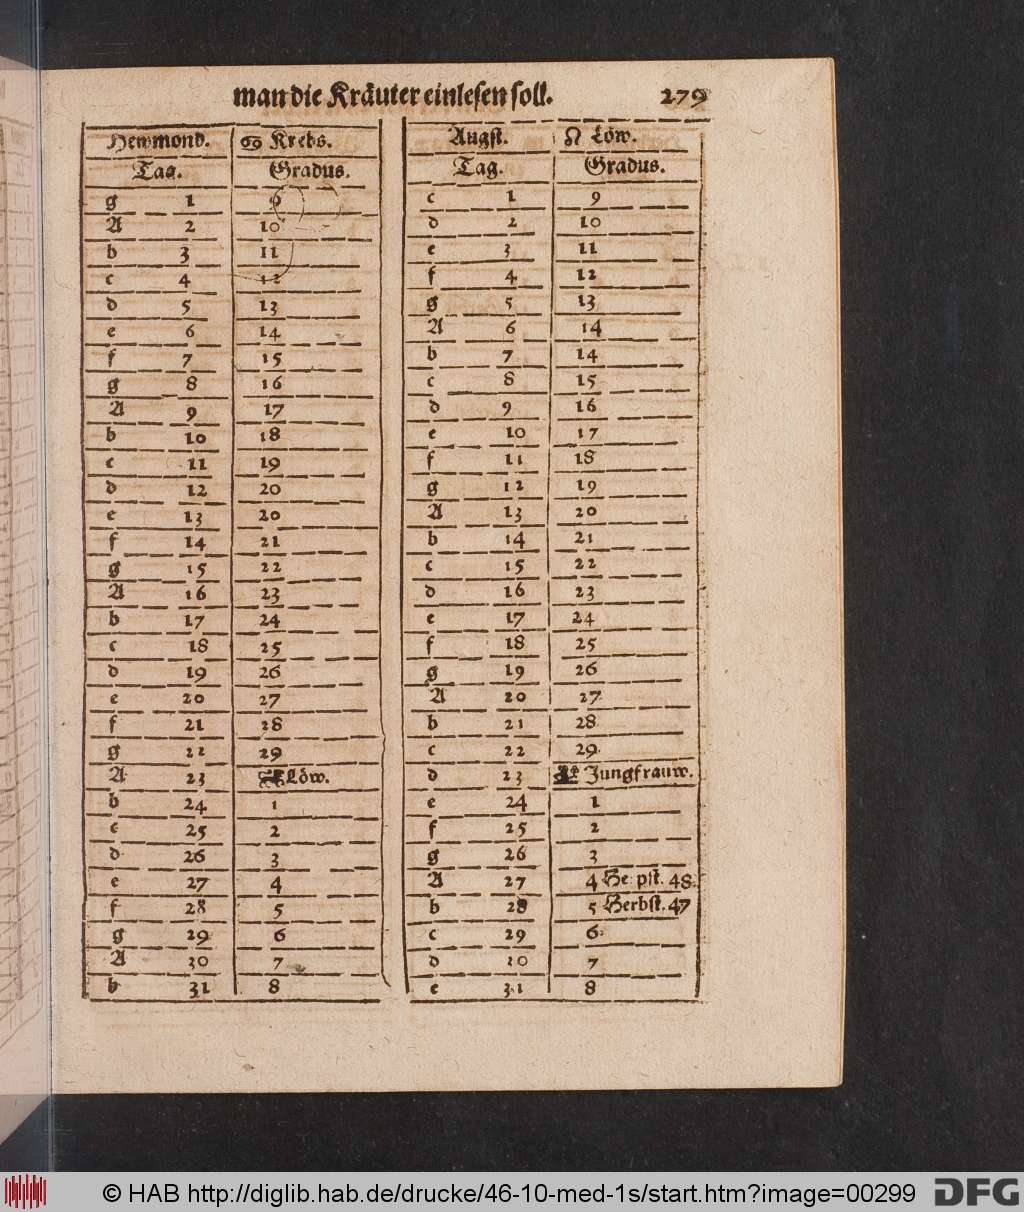 man die Kräuter einlesen soll. 279
Hewmond. ♋ Krebs.
Tag. Gradus.
g 1 9
A 2 10
b 3 11
c 4 12
d 5 13
e 6 14
f 7 15
g 8 16
A 9 17
b 10 18
c 11 19
d 12 20
e 13 20
f 14 21
g 15 22
A 16 23
b 17 24
c 18 25
d 19 26
e 20 27
f 21 28
g 22 29
A 23 Löw.
b 24 1
c 25 2
d 26 3
e 27 4
f 28 5
g 29 6
A 30 7
b 31 8
Augst. ♌ Löw.
Tag. Gradus.
c 1 9
d 2 10
e 3 11
f 4 12
g 5 13
A 6 14
b 7 14
c 8 15
d 9 16
e 10 17
f 11 18
g 12 19
A 13 20
b 14 21
c 15 22
d 16 23
e 17 24
f 18 25
g 19 26
A 20 27
b 21 28
c 22 29
d 23 Jungfrauw.
e 24 1
f 25 2
g 26 3
A 27 4 48.
b 28 5 Herbst. 47
c 29 6
d 30 7
e 31 8
© HAB http://diglib.hab.de/drucke/46-10-med-1s/start.htm?image=00299 DFG